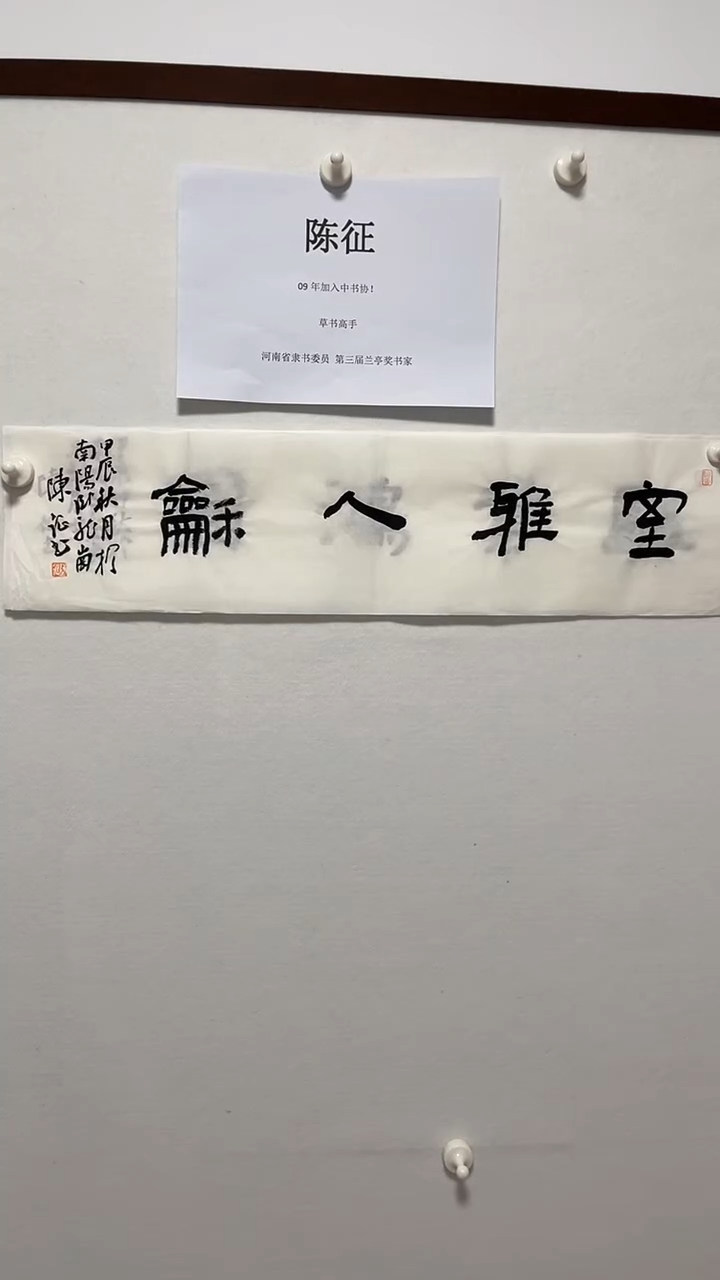 陈征
09 年加入中书协！
草书高手
河南省隶书委员 第三届兰亭奖书家
室雅人龢
甲辰秋月於
南陽卧龍崗
陳征书